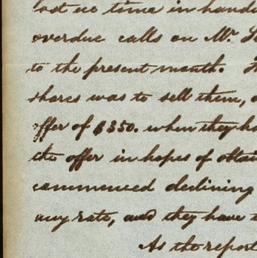 lost no time in
overdue calls on Mr.
to the present month.
shares was to sell them,
offer of $350. when they
the offer in hopes of
commenced declining
any rate, and they have
As the report